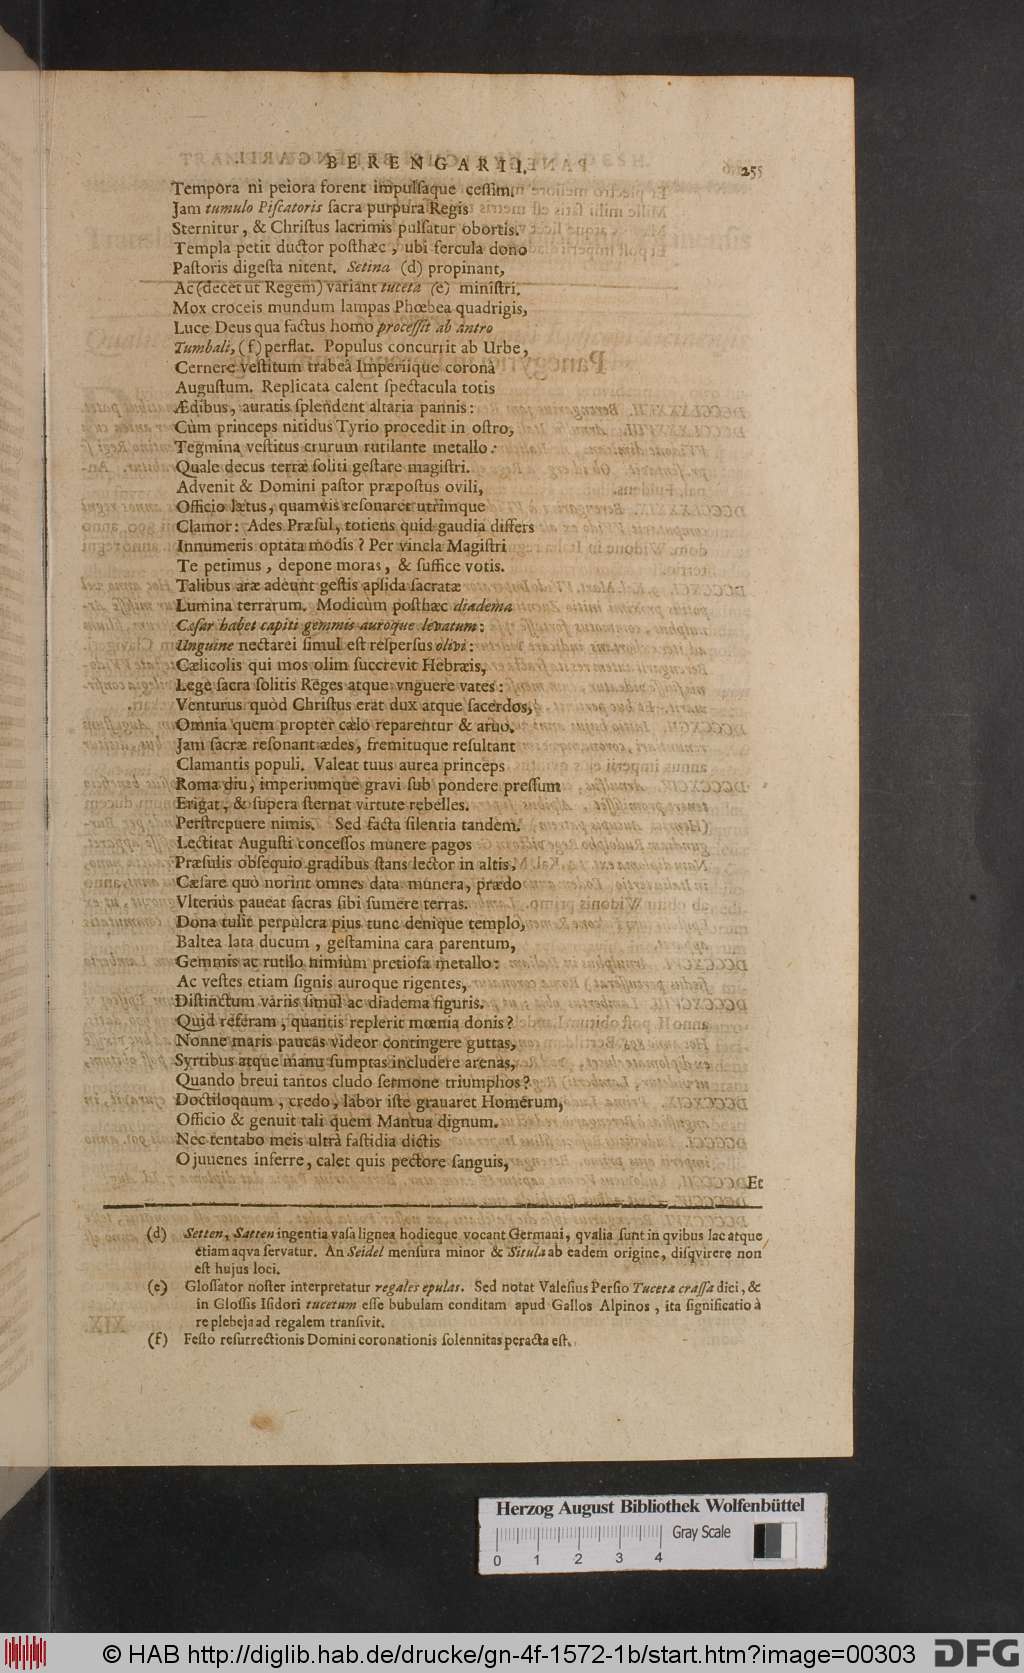 BERENGARII. 255
Tempora ni peiora forent impulſaque ceſſim.
Jam tumulo Piſcatoris ſacra purpura Regis
Sternitur, & Chriſtus lacrimis pulſatur obortis.
Templa petit ductor poſthæc, ubi fercula dono
Paſtoris digeſta nitent. Setina (d) propinant,
Ac (decet ut Regem) variant tuceta (e) miniſtri.
Mox croceis mundum lampas Phœbea quadrigis,
Luce Deus qua factus homo proceſſit ab antro
Tumbali, (f) perflat. Populus concurrit ab Urbe,
Cernere veſtitum trabeâ Imperiique coronâ
Auguſtum. Replicata calent ſpectacula totis
Ædibus, auratis ſplendent altaria pannis:
Cùm princeps nitidus Tyrio procedit in oſtro,
Tegmina veſtitus crurum rutilante metallo:
Quale decus terræ ſoliti geſtare magiſtri.
Advenit & Domini paſtor præpoſtus ovili,
Officio lætus, quamvis reſonaret utrimque
Clamor: Ades Præſul, totiens quid gaudia differs
Innumeris optata modis? Per vincla Magiſtri
Te petimus, depone moras, & ſuffice votis.
Talibus aræ adeunt geſtis apſida ſacratæ
Lumina terrarum. Modicùm poſthæc diadema
Cæſar habet capiti gemmis auroque levatum:
Unguine nectarei ſimul eſt reſperſus olivi:
Cælicolis qui mos olim ſuccrevit Hebræis,
Lege ſacra ſolitis Reges atque vnguere vates:
Venturus quòd Chriſtus erat dux atque ſacerdos,
Omnia quem propter cælo reparentur & aruo.
Jam ſacræ reſonant ædes, fremituque reſultant
Clamantis populi. Valeat tuus aurea princeps
Roma diu, imperiumque gravi ſub pondere preſſum
Erigat, & ſupera ſternat virtute rebelles.
Perſtrepuere nimis. Sed facta ſilentia tandem.
Lectitat Auguſti conceſſos munere pagos
Præſulis obſequio gradibus ſtans lector in altis,
Cæſare quò norint omnes data munera, prædo
Vlteriùs paueat ſacras ſibi ſumere terras.
Dona tulit perpulcra pius tunc denique templo,
Baltea lata ducum, geſtamina cara parentum,
Gemmis ac rutilo nimium pretioſa metallo:
Ac veſtes etiam ſignis auroque rigentes,
Diſtinctum variis ſimul ac diadema figuris.
Quid referam, quantis replerit mœnia donis?
Nonne maris paucas videor contingere guttas,
Syrtibus atque manu ſumptas includere arenas,
Quando breui tantos cludo ſermone triumphos?
Doctiloquum, credo, labor iſte grauaret Homerum,
Officio & genuit tali quem Mantua dignum.
Nec tentabo meis ultrà faſtidia dictis
O juuenes inferre, calet quis pectore ſanguis,
Et
(d) Setten, Satten ingentia vaſa lignea hodieque vocant Germani, qvalia ſunt in qvibus lac atque
etiam aqva ſervatur. An Seidel menſura minor & Situla ab eadem origine, diſqvirere non
eſt hujus loci.
(e) Gloſſator noſter interpretatur regales epulas. Sed notat Valeſius Perſio Tuceta craſſa dici, &
in Gloſſis Iſidori tucetum eſſe bubulam conditam apud Gallos Alpinos, ita ſignificatio à
re plebeja ad regalem tranſivit.
(f) Feſto reſurrectionis Domini coronationis ſolennitas peracta eſt.
Herzog August Bibliothek Wolfenbüttel
Gray Scale
0 1 2 3 4
© HAB http://diglib.hab.de/drucke/gn-4f-1572-1b/start.htm?image=00303 DFG